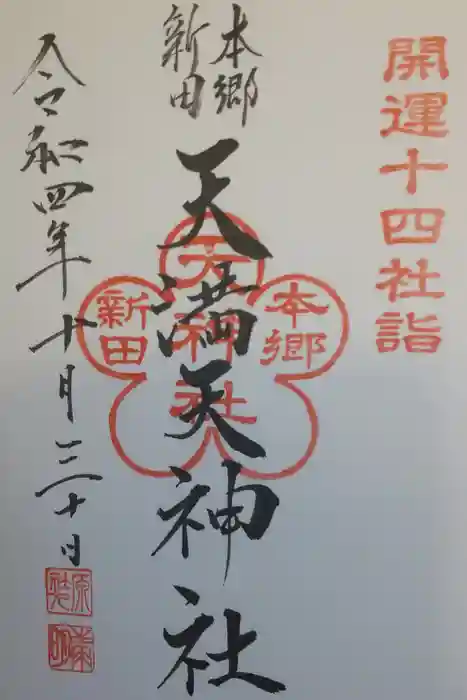 開運十四社詣
本郷
新田
天満天神社
本郷
天神社
新田
令和四年十月三十日